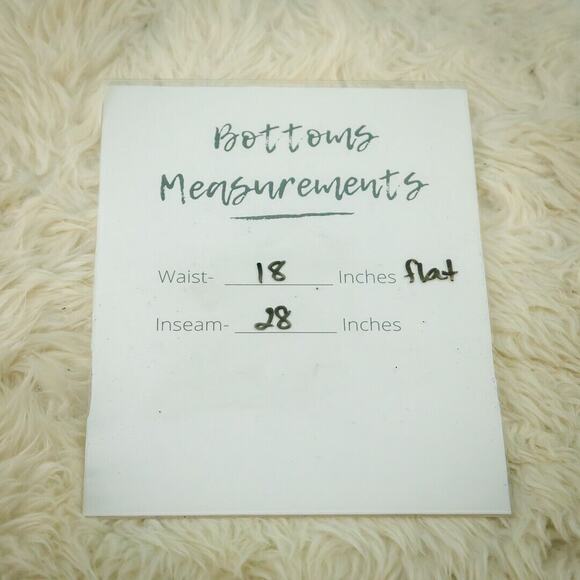 Bottoms
Measurements
Waist- 18 Inches flat
Inseam- 28 Inches